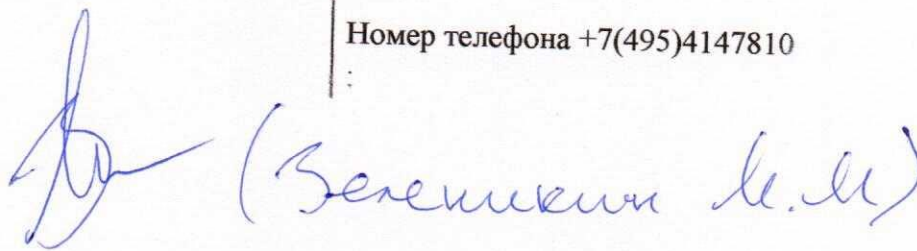 Номер телефона +7(495)4147810
:
(Зеленикин М.М)